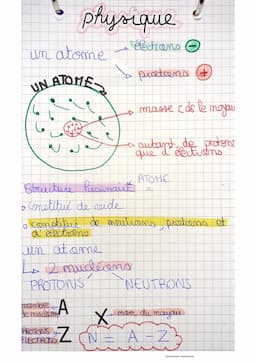 physique
un atome → électrons ⊖
→ protons ⊕
UN ATOME
masse c ds le noyau
autant de protons
que d'électrons
Structure lacunaire ATOME =
• Constitué de vide
• constitué de neutrons, protons et
d'électrons
un atome
↳ 2 nucléons
PROTONS NEUTRONS
nombre
de nucléons A
X → nom du noyau
PROTONS
ÉLECTRONS Z
N = A - Z